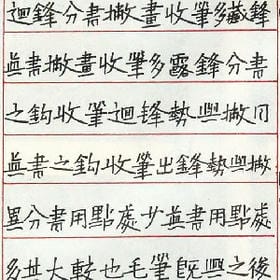 迴鋒分書撇畫收筆多藏鋒
眞書撇畫收筆多露鋒分書
之鈎收筆迴鋒勢與撇同
眞書之鈎收筆出鋒勢與撇
異分書用點處少眞書用點處
多其大較也毛筆既興之後